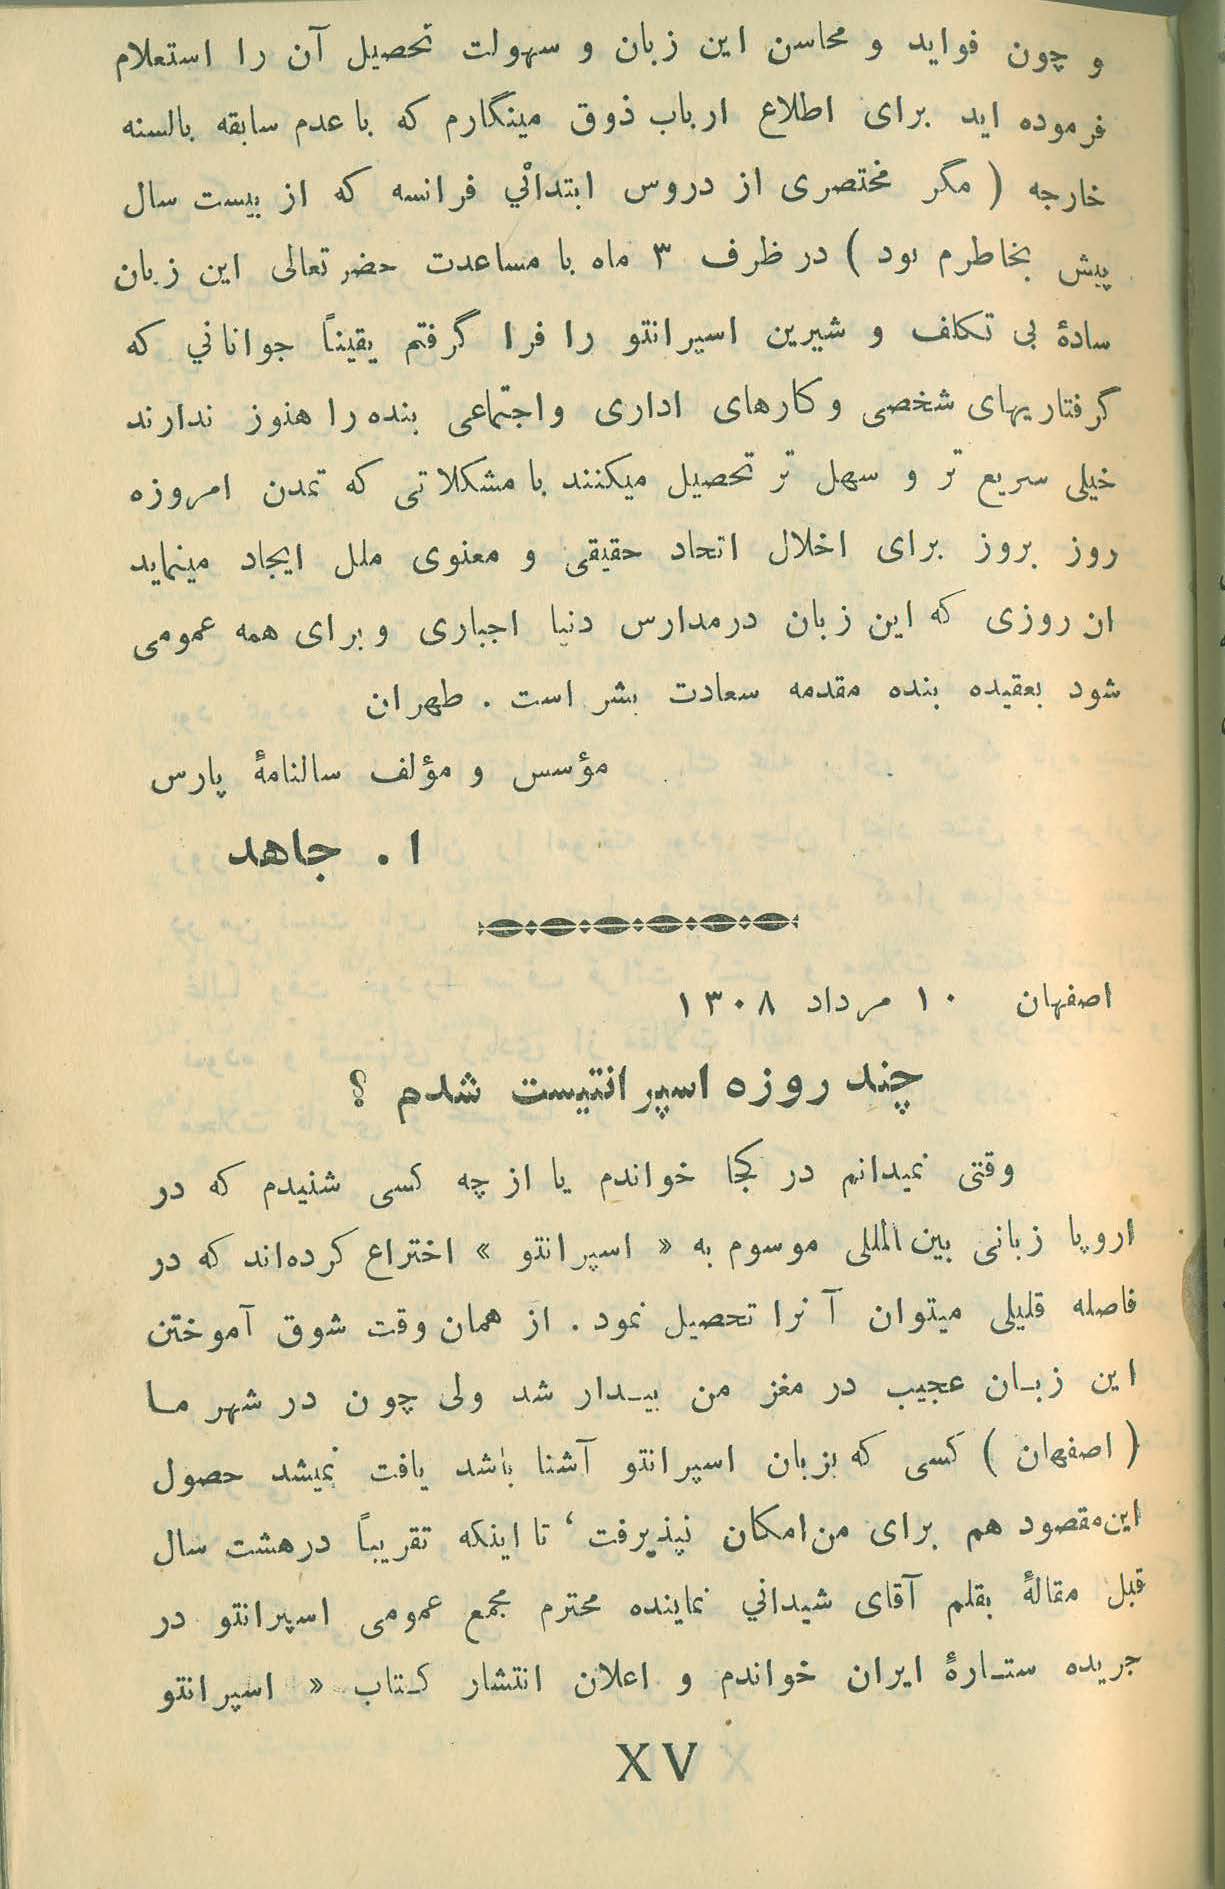 و چون فواید و محاسن این زبان و سهولت تحصیل آن را استعلام
فرموده اید برای اطلاع ارباب ذوق مینگارم که با عدم سابقه بالسنه
خارجه ( مگر مختصری از دروس ابتدائي فرانسه که از بیست سال
پیش بخاطرم بود ) در ظرف ۳ ماه با مساعدت حضرتعالی این زبان
سادهٔ بی تکلف و شیرین اسپرانتو را فرا گرفتم یقیناً جواناني که
گرفتاریهای شخصی و کارهای اداری و اجتماعی بنده را هنوز ندارند
خیلی سریع تر و سهل تر تحصیل میکنند با مشکلاتی که تمدن امروزه
روز بروز برای اخلال اتحاد حقیقی و معنوی ملل ایجاد مینماید
ان روزی که این زبان در مدارس دنیا اجباری و برای همه عمومی
شود بعقیده بنده مقدمه سعادت بشر است . طهران
مؤسس و مؤلف سالنامهٔ پارس
ا . جاهد
اصفهان ۱۰ مرداد ۱۳۰۸
چند روزه اسپرانتیست شدم ؟
وقتی نمیدانم در کجا خواندم یا از چه کسی شنیدم که در
اروپا زبانی بین‌المللی موسوم به « اسپرانتو » اختراع کرده‌اند که در
فاصله قلیلی میتوان آنرا تحصیل نمود . از همان وقت شوق آموختن
این زبـان عجیب در مغز من بیـدار شد ولی چون در شهر مـا
( اصفهان ) کسی که بزبان اسپرانتو آشنا باشد یافت نمیشد حصول
این‌مقصود هم برای من‌امکان نپذیرفت ، تا اینکه تقریباً در هشت سال
قبل مقالهٔ بقلم آقای شیداني نماینده محترم مجمع عمومی اسپرانتو در
جریده ستـارهٔ ایران خواندم و اعلان انتشار کـتاب « اسپرانتو
XV